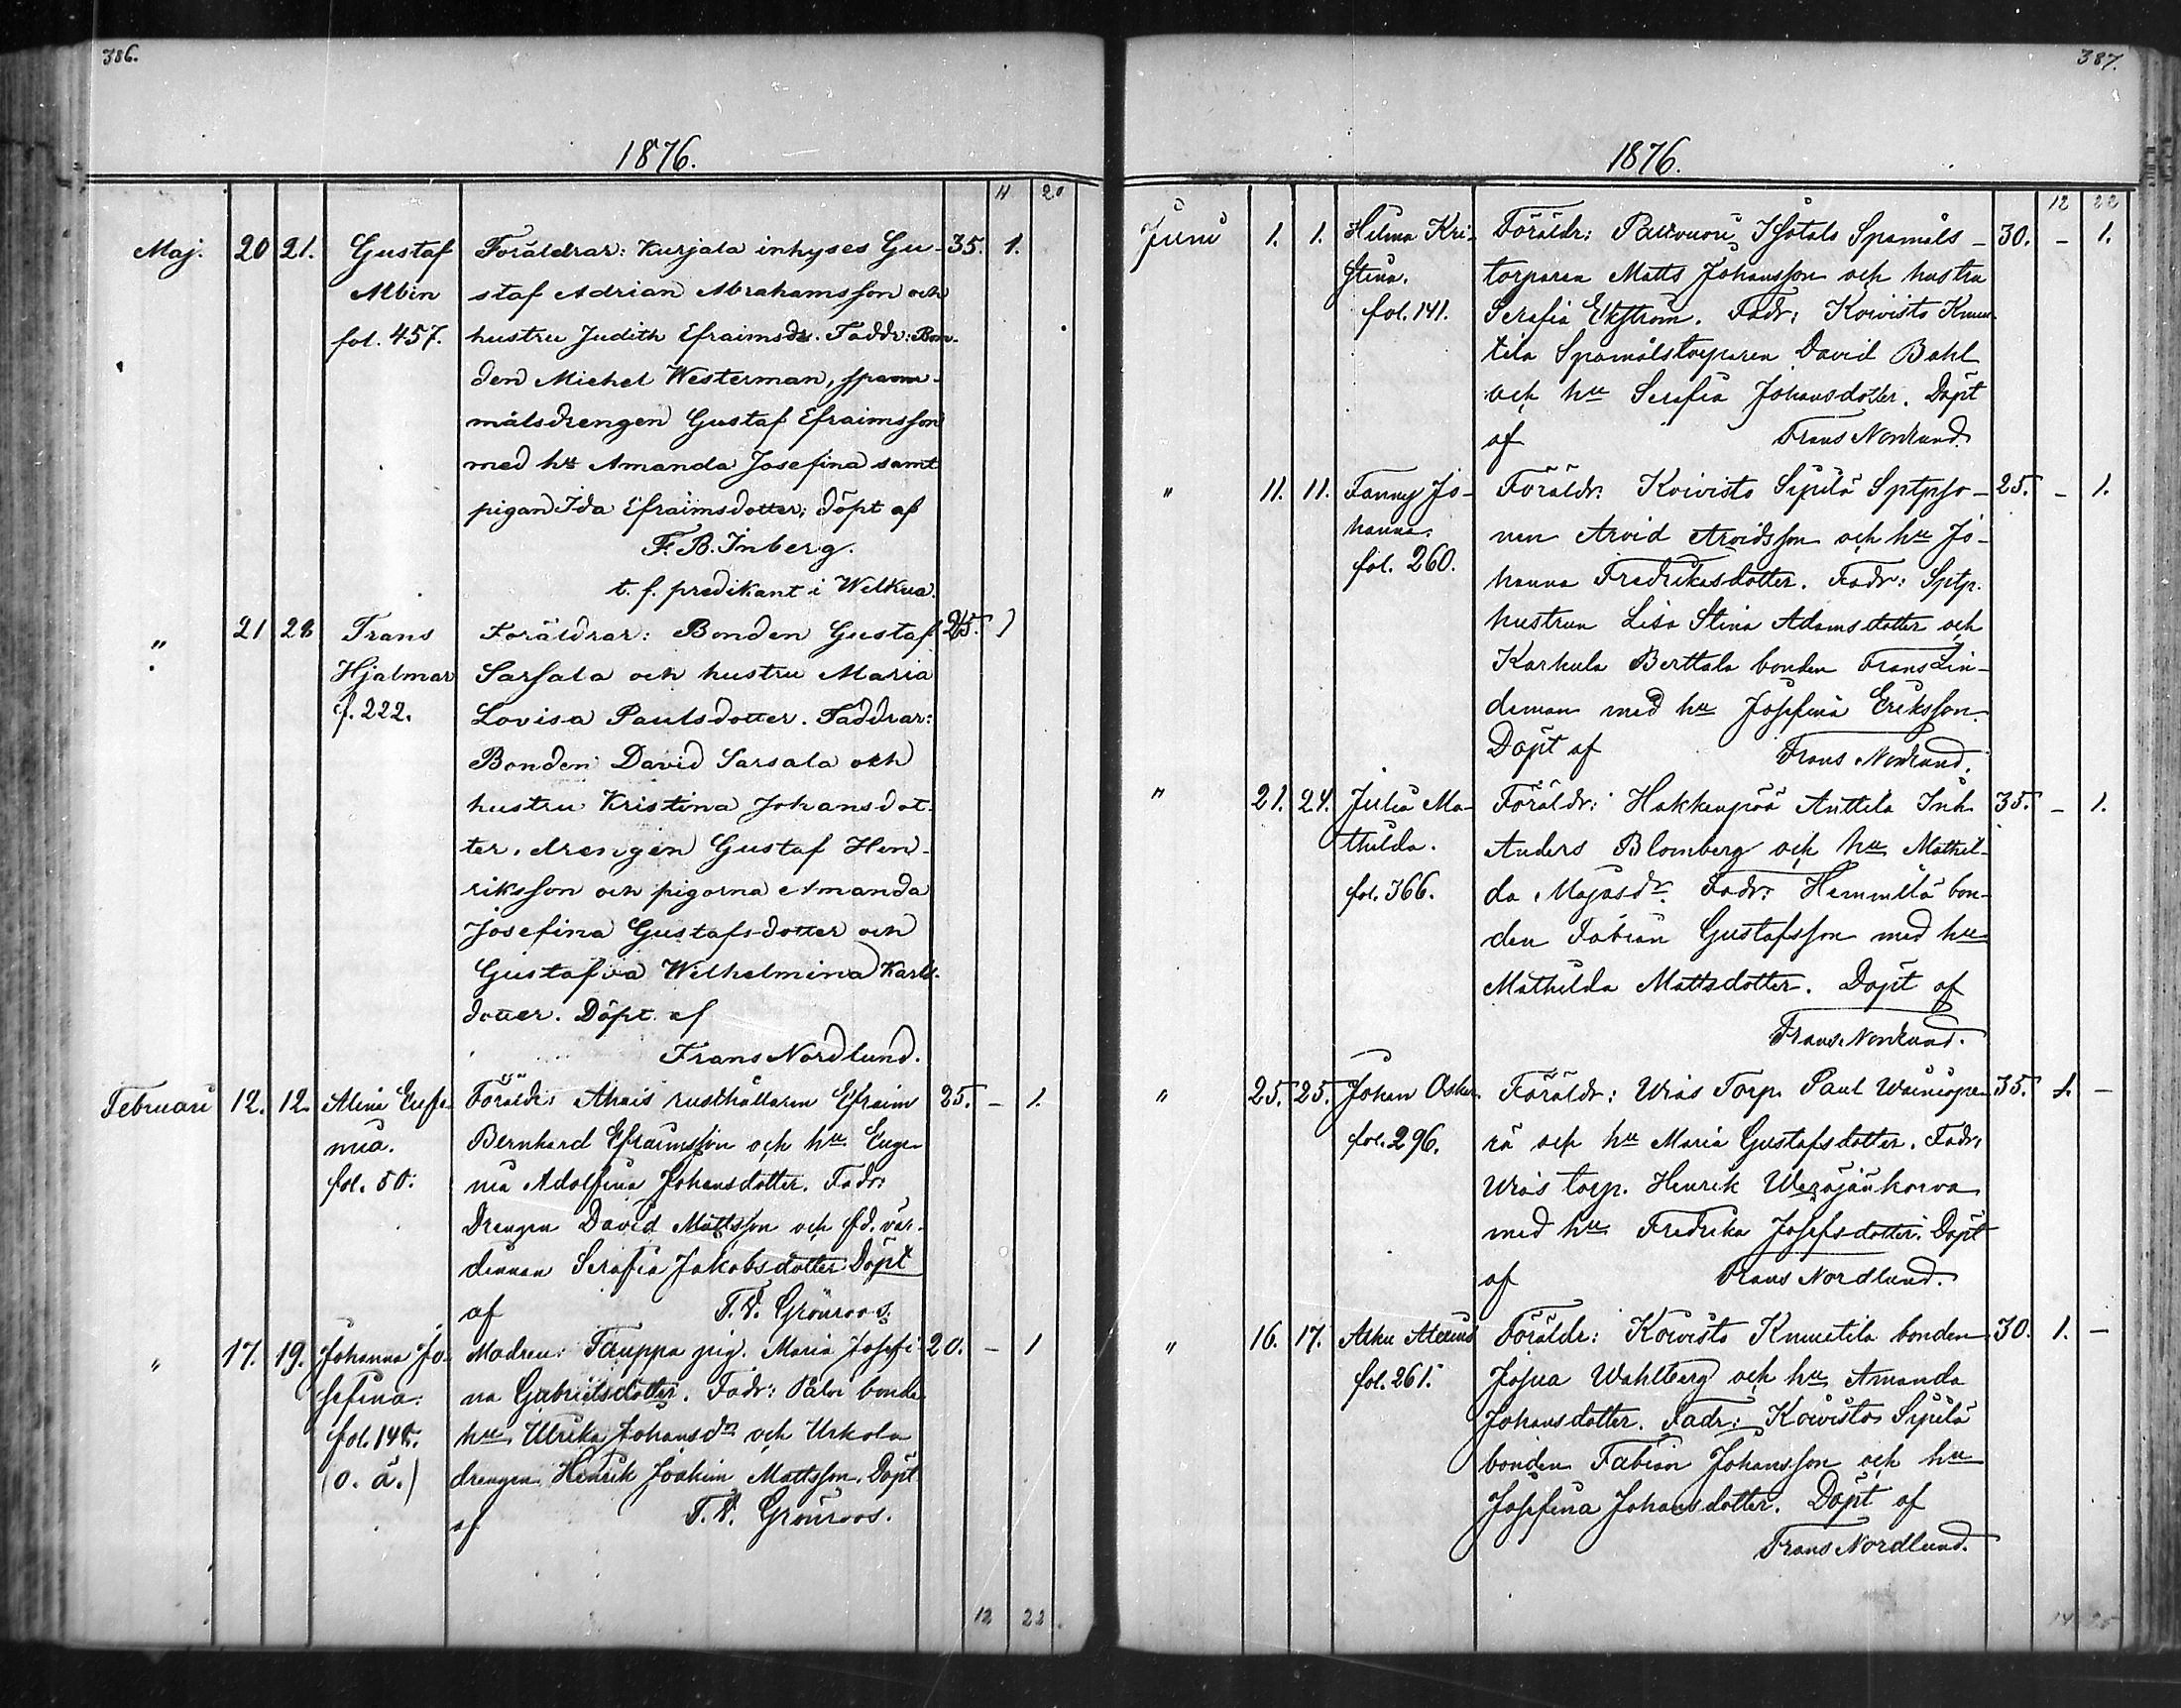 386.
1876.
11 20
Maj. 20 21. Gustaf Föräldrar: Kurjala inhyses Gu- 35. 1.
Albin staf Adrian Abrahamsson och
fol. 457. hustru Judith Efraimsdr. Faddr: Bon-
den Michel Westerman, spann-
målsdrengen Gustaf Efraimsson
med hu Amanda Josefina samt
pigan Ida Efraimsdotter; döpt af
F. B. Inberg.
t. f. predikant i Welkua.
" 21 28 Frans Föräldrar: Bonden Gustaf 25. 1
Hjalmar Sarsala och hustru Maria
f. 222. Lovisa Paulsdotter. Faddrar:
Bonden David Sarsala och
hustru Kristina Johansdot-
ter, drengen Gustaf Hen-
riksson och pigorna Amanda
Josefina Gustafsdotter och
Gustafva Wilhelmina Karls-
dotter. Döpt af
Frans Nordlund.
Februari 12. 12. Alina Eufe- Föräldr: Ahais rusthållaren Efraim 25. – 1.
mia. Bernhard Efraimsson och hu Euge-
fol. 50. nia Adolfina Johansdotter. Fadr:
Drengen David Mattsson och fd. vär-
dinnan Serafia Jakobsdotter Döpt
af F. V. Grönroos.
" 17. 19. Johanna Jo- Modren: Tauppa pig. Maria Josefi- 20. – 1
sefina. na Gabrielsdotter. Fadr: Palo bonde
fol. 148. hu Ulrika Johansdr och Urkola
(o. ä.) drengen Henrik Joakim Mattsson. Döpt
af F. V. Grönroos.
12 22
387.
1876.
12 22
Juni 1. 1. Hilma Kri- Föräldr: Isotalo Spamåls- 30. – 1.
stina. torparen Matts Johansson och hustru
fol. 141. Serafia Ekström. Fadr: Koivisto Knuu-
tila Spamålstorparen David Bahl
och hu Serafia Johansdotter. Döpt
af Frans Nordlund.
" 11. 11. Fanny Jo- Föräldr: Koivisto Sipilä Sptpso- 25. – 1.
hanna. nen Arvid Arvidsson och hu Jo-
fol. 260. hanna Fredriksdotter. Fadr: Sptp.
hustrun Lisa Stina Adamsdotter och
Karhula Berttala bonden Frans Lin-
deman med hu Josefina Eriksson.
Döpt af Frans Nordlund.
" 21. 24. Julia Ma- Föräldr: Hakkenpää Anttila Inh. 35. – 1.
thilda. Anders Blomberg och hu Mathil-
fol. 366. da Majasdr. Fadr: Hemmilä bon-
den Fabian Gustafsson med hu
Mathilda Mattsdotter. Döpt af
Frans Nordlund.
" 25. 25. Johan Oskar. Föräldr: Wias Torp. Paul Wäinispe- 35. 1. –
fol. 296. rä och hu Maria Gustafsdotter. Fadr:
Wias torp. Henrik Weräjänkorva
med hu Fredrika Josefsdotter. Döpt
af Frans Nordlund.
" 16. 17. Arku Alexius Föräldr: Koivisto Knuutila bonden 30. 1. –
fol. 261. Josua Wahlberg och hu Amanda
Johansdotter. Fadr: Koivisto Sipilä
bonden Fabian Johansson och hu
Josefina Johansdotter. Döpt af
Frans Nordlund.
14 25